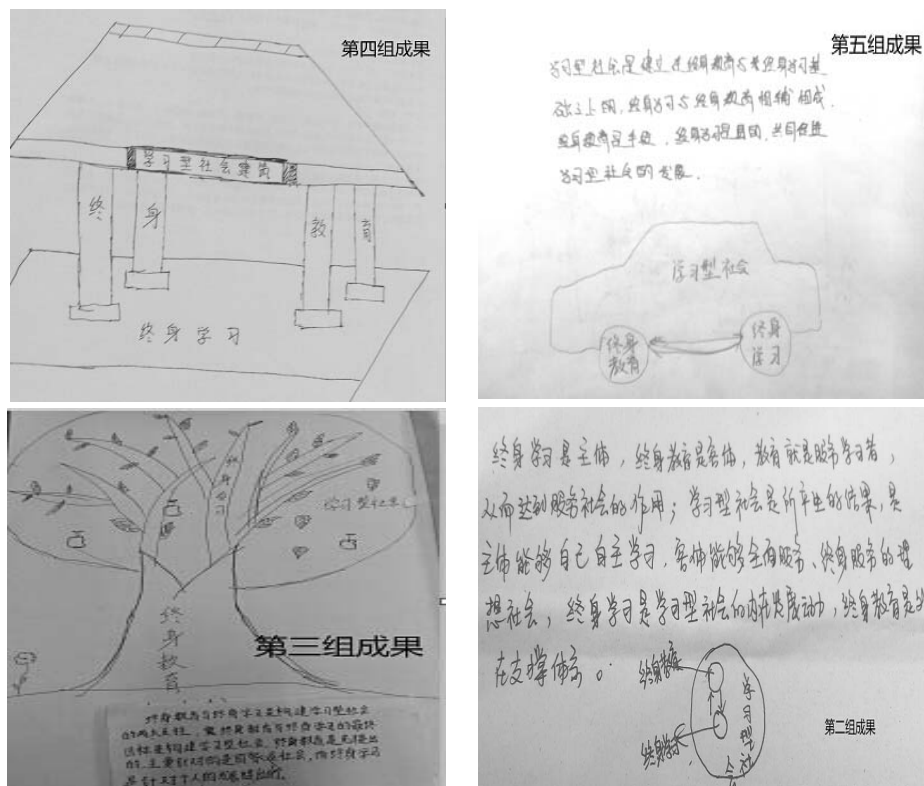 第四组成果
学习型社会建筑
终
身
教
育
终身学习
第五组成果
学习型社会是建立在终身教育与终身学习基
础之上的,终身学习与终身教育相辅相成.
终身教育是手段,终身学习是目的,共同促进
学习型社会的发展.
学习型社会
终身
教育
终身
学习
终身学习
学习型社会
终身教育
第三组成果
终身教育与终身学习是构建学习型社会
的两大支柱,
终身教育与终身学习的最终
目标是构建学习型社会,终身教育是先提出
的,主要针对的是国家或社会,而终身学习
是针对个人的
终身学习是主体,终身教育是客体,教育就是服务学习者,
从而达到服务社会的作用;学习型社会是所产生的结果,是
主体能够自己自主学习,客体能够全面服务、终身服务的理
想社会,终身学习是学习型社会的内在发展动力,终身教育是
在支撑体系。
终身教育
学习型社会
终身学习
第二组成果